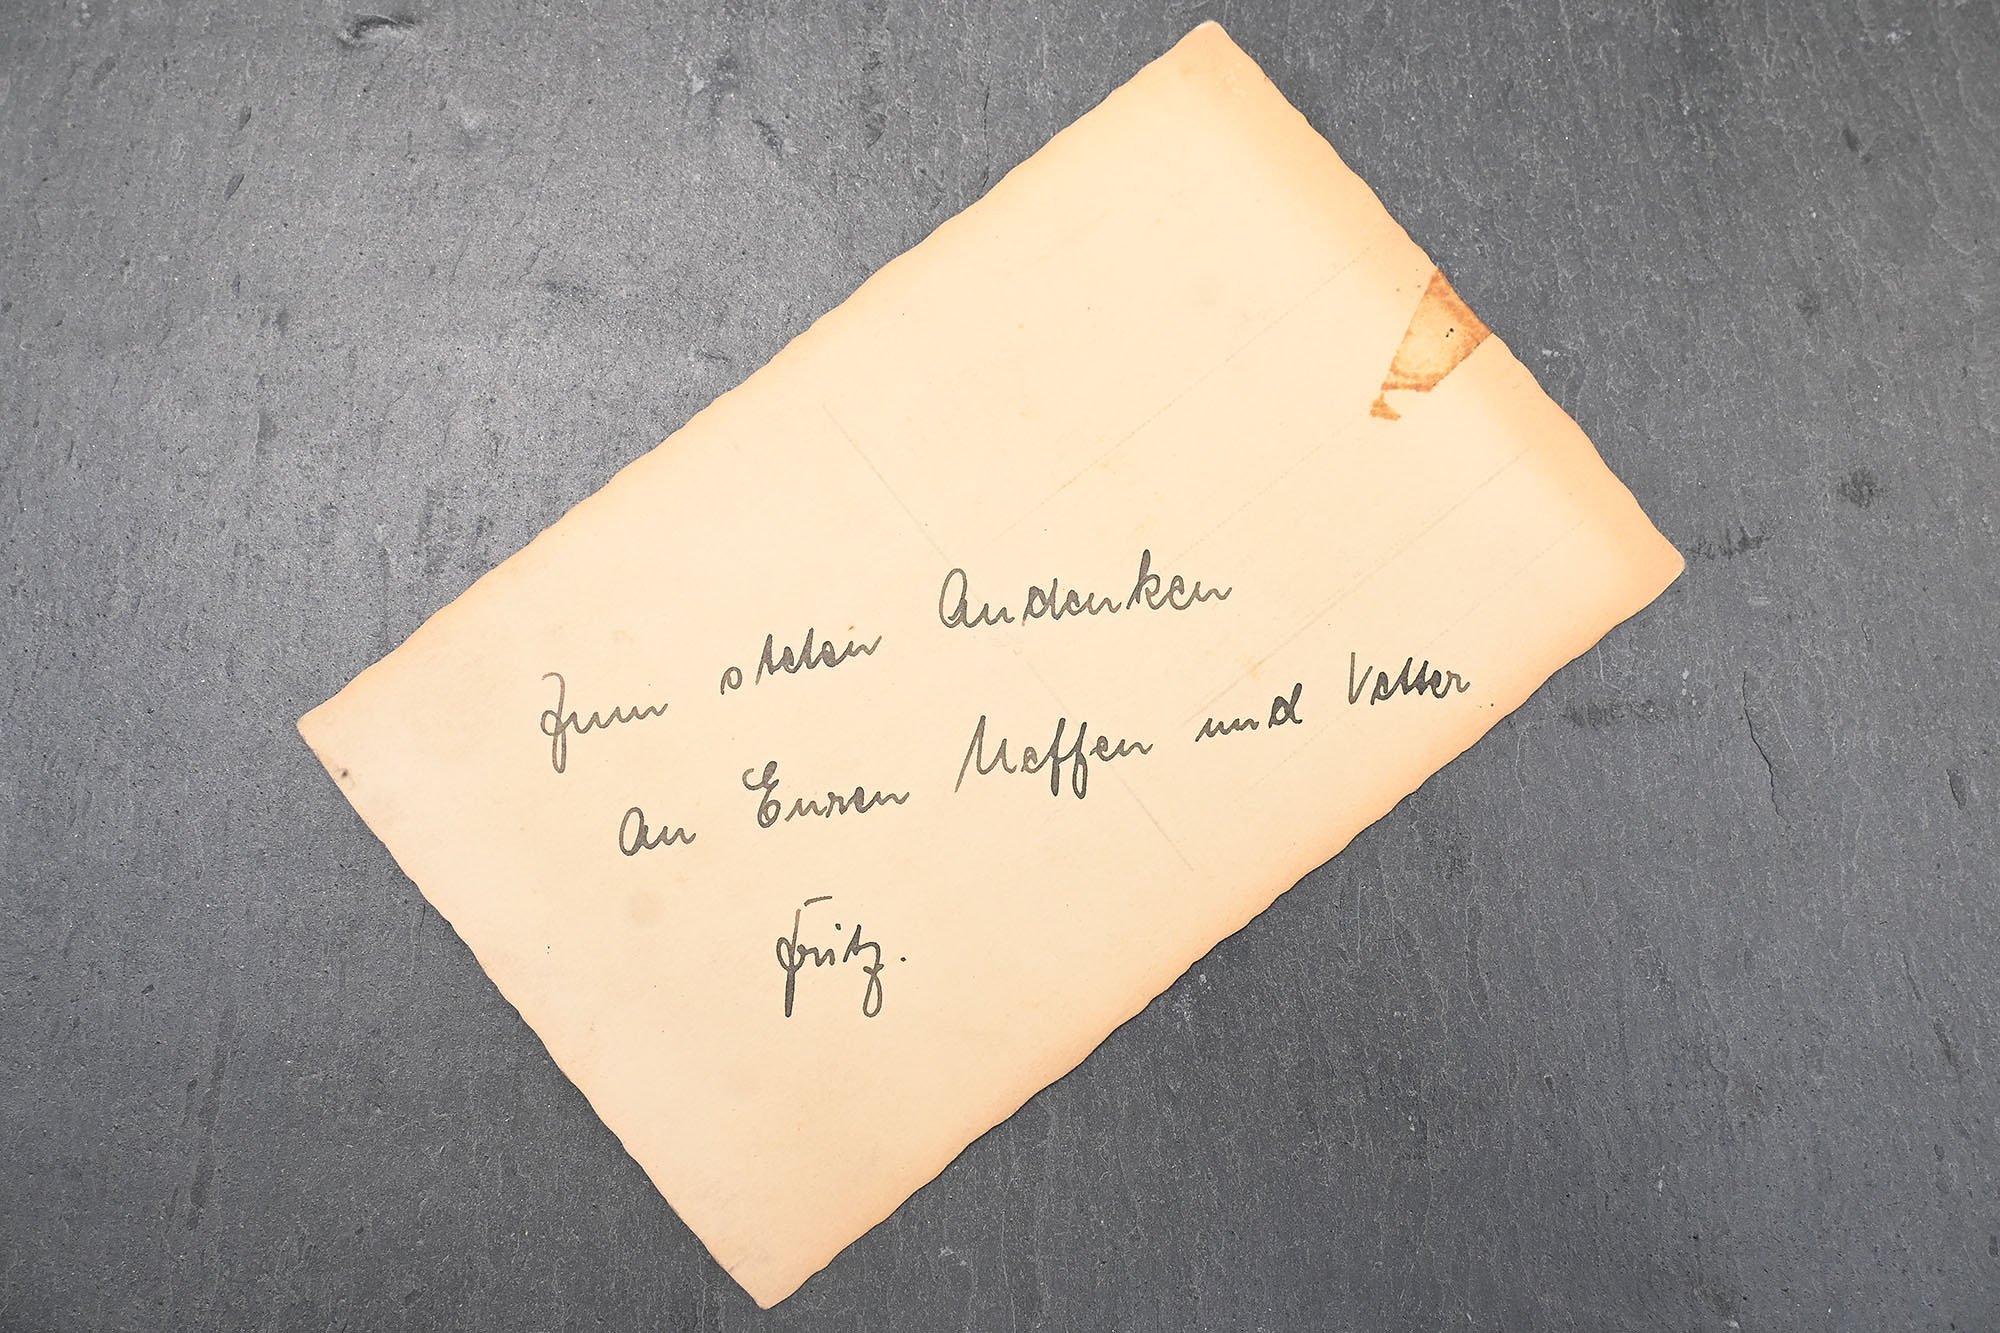 Zum steten Andenken
an Euren Neffen und Vetter
Fritz.